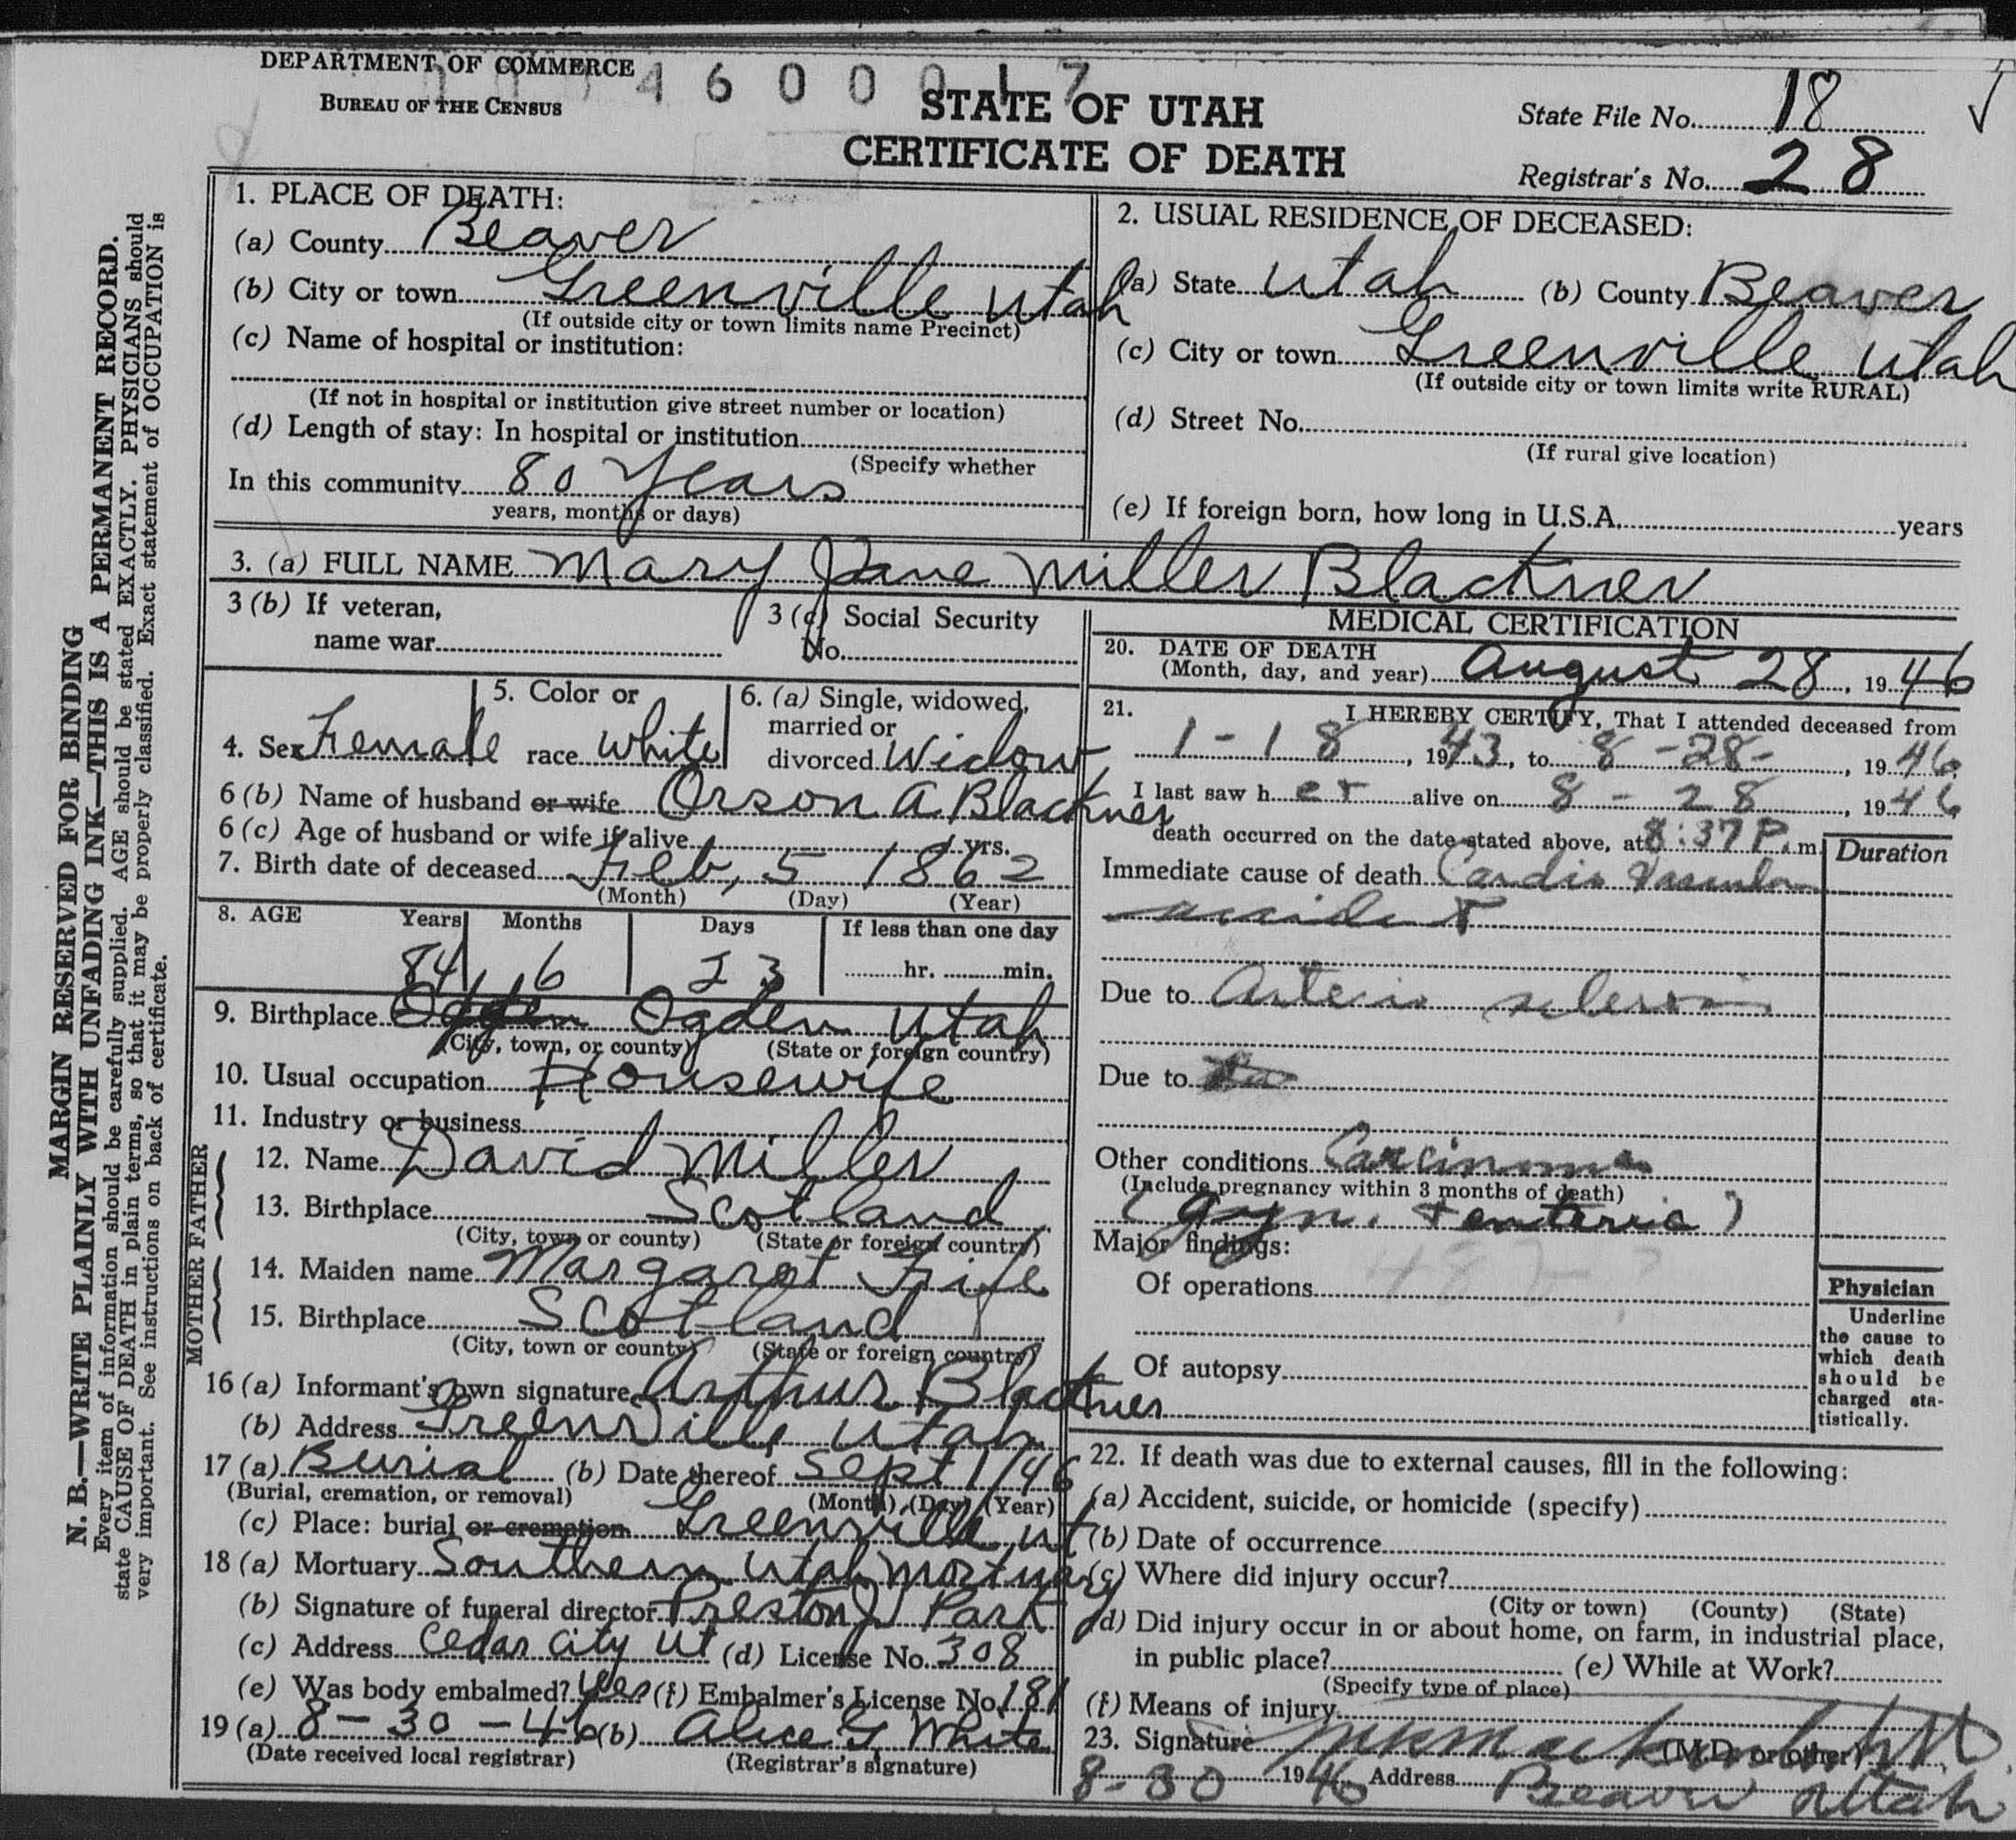 DEPARTMENT OF COMMERCE
BUREAU OF THE CENSUS
4 6 0 0 0 1 7
STATE OF UTAH
CERTIFICATE OF DEATH
State File No. 18
Registrar's No. 28
MARGIN RESERVED FOR BINDING
N. B.—WRITE PLAINLY WITH UNFADING INK—THIS IS A PERMANENT RECORD.
Every item of information should be carefully supplied. AGE should be stated EXACTLY. PHYSICIANS should
state CAUSE OF DEATH in plain terms, so that it may be properly classified. Exact statement of OCCUPATION is
very important. See instructions on back of certificate.
1. PLACE OF DEATH:
(a) County Beaver
(b) City or town Greenville Utah
(If outside city or town limits name Precinct)
(c) Name of hospital or institution:
(If not in hospital or institution give street number or location)
(d) Length of stay: In hospital or institution
(Specify whether
In this community 80 years
years, months or days)
2. USUAL RESIDENCE OF DECEASED:
(a) State Utah (b) County Beaver
(c) City or town Greenville Utah
(If outside city or town limits write RURAL)
(d) Street No.
(If rural give location)
(e) If foreign born, how long in U.S.A. years
3. (a) FULL NAME Mary Jane Miller Blackner
3 (b) If veteran,
name war
3 (c) Social Security
No.
4. Sex Female
5. Color or
race White
6. (a) Single, widowed,
married or
divorced Widow
6 (b) Name of husband or wife Orson A Blackner
6 (c) Age of husband or wife if alive yrs.
7. Birth date of deceased Feb, 5 1862
(Month) (Day) (Year)
8. AGE Years Months Days If less than one day
84 6 23 hr. min.
9. Birthplace Ogden Ogden Utah
(City, town, or county) (State or foreign country)
10. Usual occupation Housewife
11. Industry or business
FATHER
12. Name David Miller
13. Birthplace Scotland
(City, town or county) (State or foreign country)
MOTHER
14. Maiden name Margaret Fife
15. Birthplace Scotland
(City, town or county) (State or foreign country)
16 (a) Informant's own signature Arthur Blackner
(b) Address Greenville Utah
17 (a) Burial (b) Date thereof Sept 1/46
(Burial, cremation, or removal) (Month) (Day) (Year)
(c) Place: burial or cremation Greenville Ut
18 (a) Mortuary Southern Utah Mortuary
(b) Signature of funeral director Preston J Park
(c) Address Cedar City Ut (d) License No. 308
(e) Was body embalmed? Yes (f) Embalmer's License No. 181
19 (a) 8-30-46 (b) Alice G White
(Date received local registrar) (Registrar's signature)
MEDICAL CERTIFICATION
20. DATE OF DEATH
(Month, day, and year) August 28, 1946
21. I HEREBY CERTIFY, That I attended deceased from
1-18, 1943, to 8-28-, 1946
I last saw her alive on 8-28, 1946
death occurred on the date stated above, at 8:37 P.m.
Duration
Immediate cause of death Cardio Vascular
accident
Due to Arterio sclerosis
Due to
Other conditions Carcinoma
(Include pregnancy within 3 months of death)
(Gyn. + enteric)
Major findings:
Of operations
Of autopsy
Physician
Underline
the cause to
which death
should be
charged sta-
tistically.
22. If death was due to external causes, fill in the following:
(a) Accident, suicide, or homicide (specify)
(b) Date of occurrence
(c) Where did injury occur?
(City or town) (County) (State)
(d) Did injury occur in or about home, on farm, in industrial place,
in public place? (e) While at Work?
(Specify type of place)
(f) Means of injury
23. Signature (M.D. or other)
8-30 1946 Address Beaver Utah